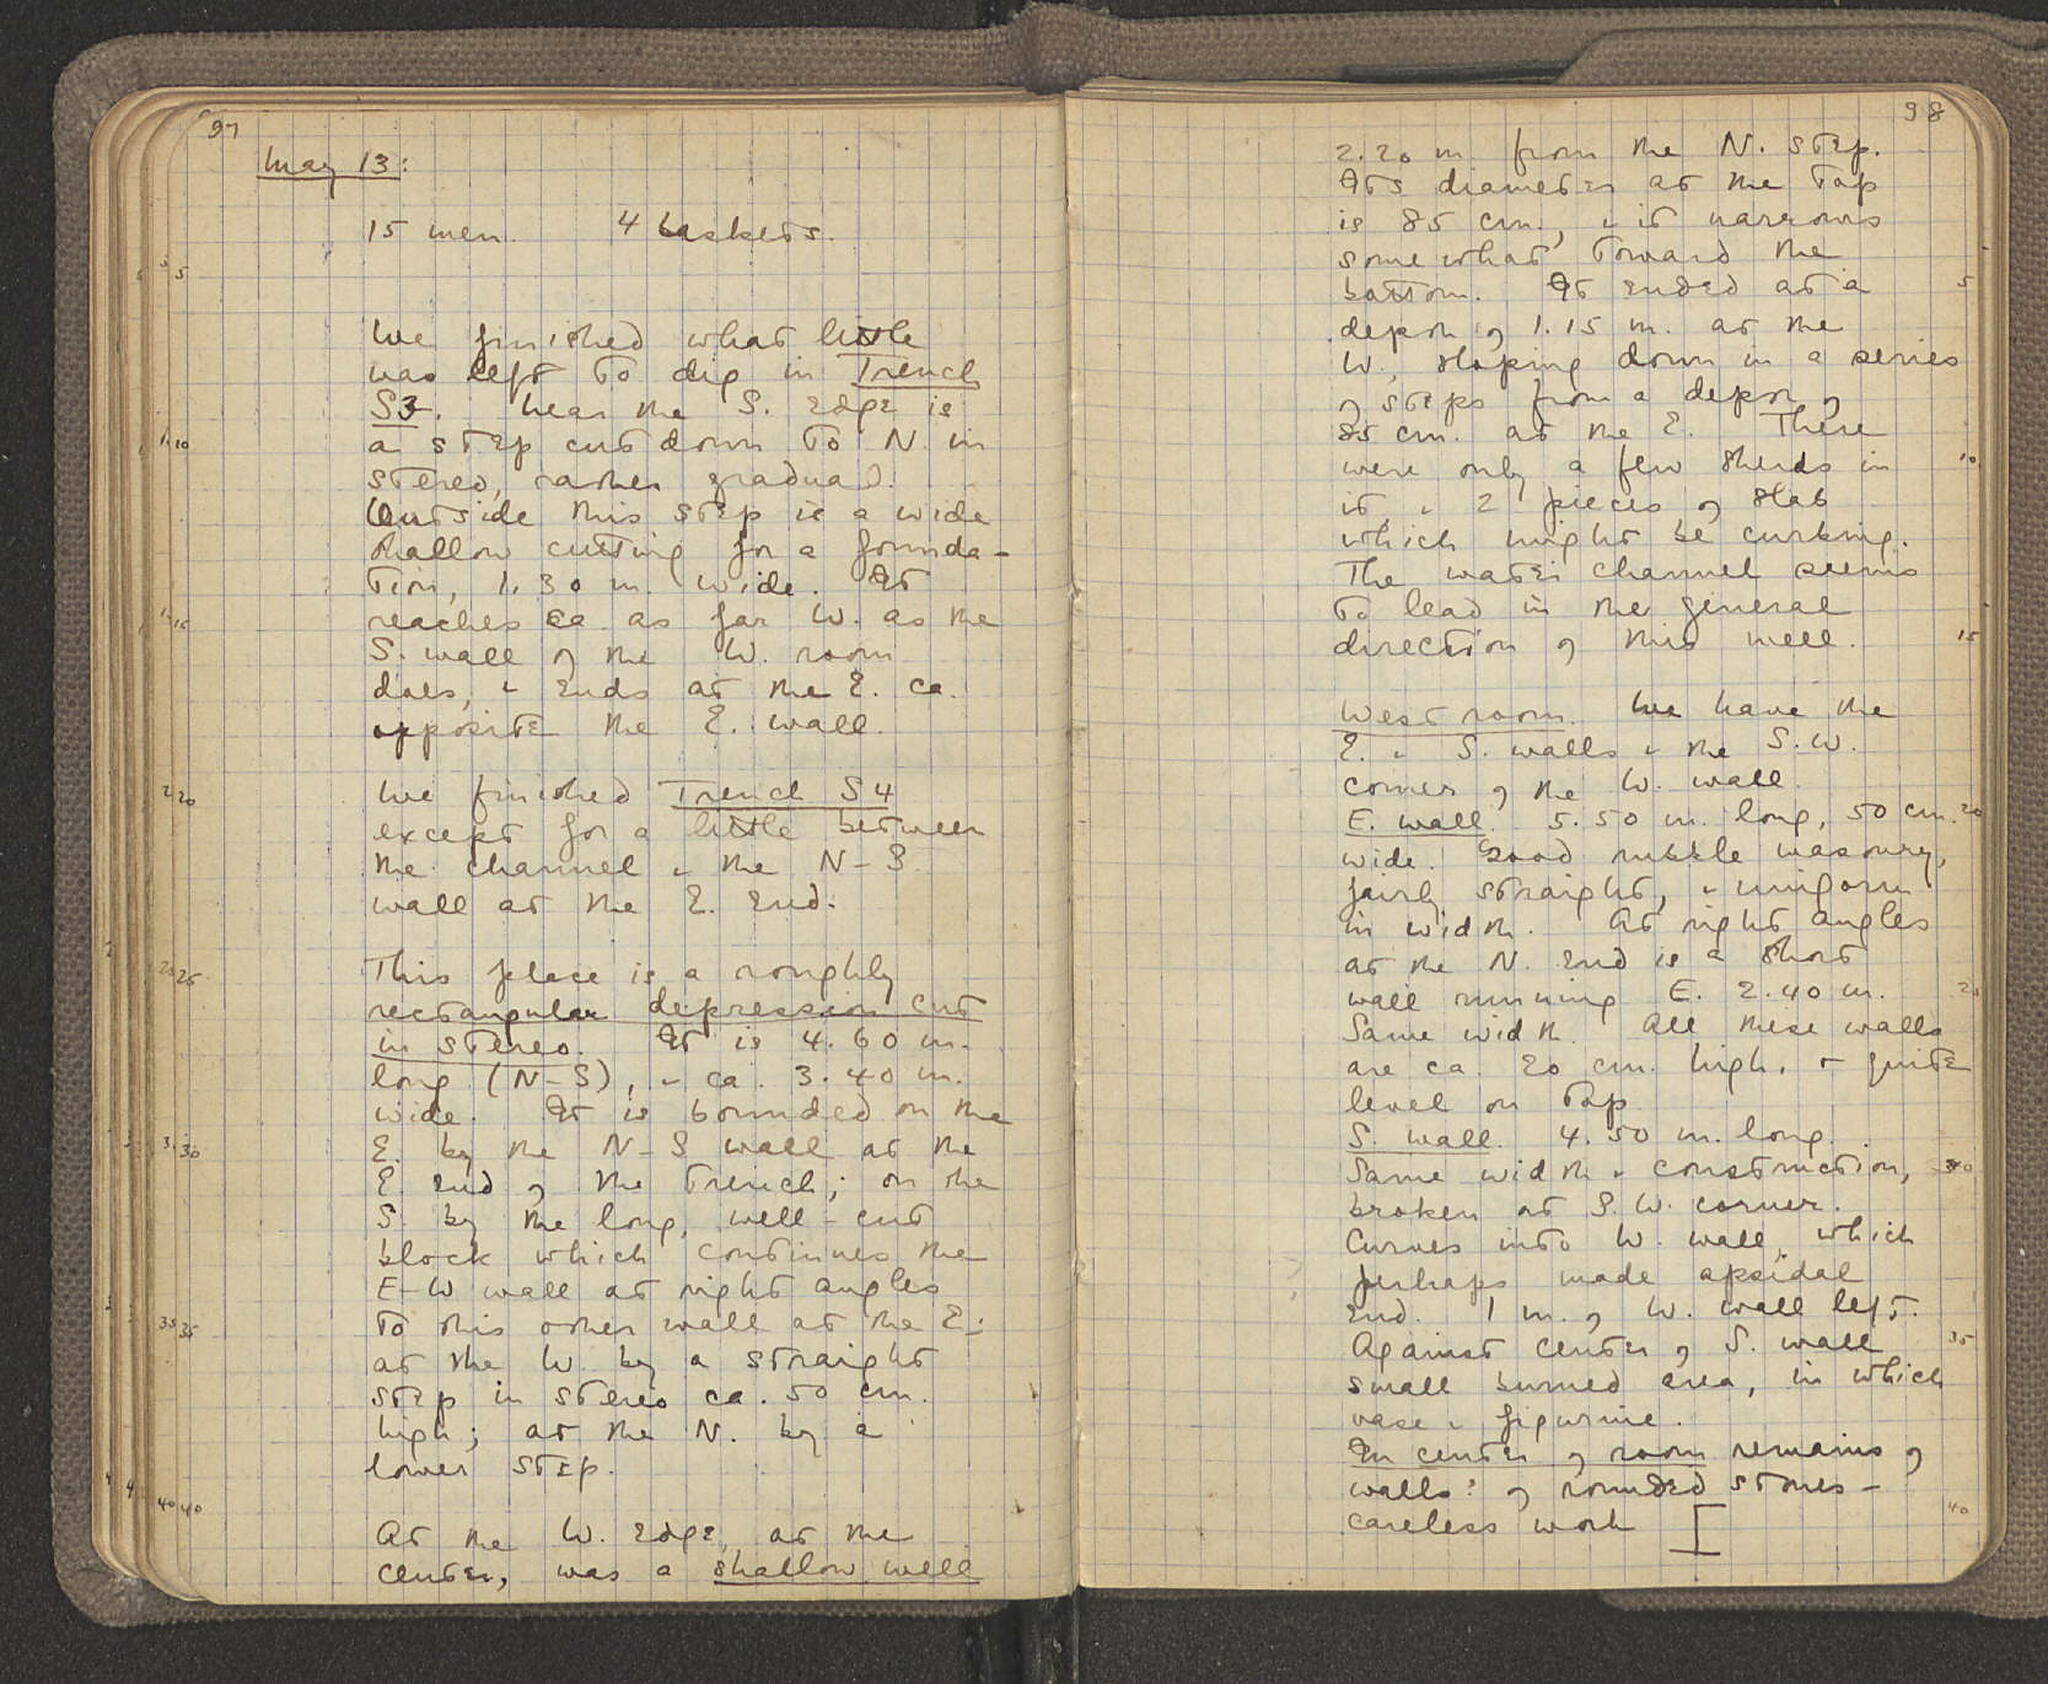 97
May 13:
15 men. 4 baskets.
We finished what little
was left to dig in Trench
S3. Near the S. edge is
a step cut down to N. in
stereo, rather gradual.
Outside this step is a wide
shallow cutting for a founda-
tion, 1.30 m. wide. It
reaches ca. as far W. as the
S. wall of the W. room
does, & ends at the E. ca.
opposite the E. wall.
We finished Trench S4
except for a little between
the channel & the N-S
wall at the E. end.
This place is a roughly
rectangular depression cut
in stereo. It is 4.60 m.
long (N-S), & ca. 3.40 m.
wide. It is bounded on the
E. by the N-S wall at the
E. end of the trench; on the
S. by the long, well-cut
block which continues the
E-W wall at right angles
to this other wall at the E.;
at the W. by a straight
step in stereo ca. 50 cm.
high; at the N. by a
lower step.
At the W. edge, at the
center, was a shallow well
5
10
15
20
25
30
35
40
98
2.20 m. from the N. step.
Its diameter at the top
is 85 cm., & it narrows
somewhat toward the
bottom. It ended at a
depth of 1.15 m. at the
W., sloping down in a series
of steps from a depth of
85 cm. at the E. There
were only a few sherds in
it, & 2 pieces of slab
which might be curbing.
The water channel seems
to lead in the general
direction of this well.
West room. We have the
E. & S. walls & the S.W.
corner of the W. wall.
E. wall. 5.50 m. long, 50 cm.
wide. Good rubble masonry,
fairly straight, & uniform
in width. At right angles
at the N. end is a short
wall running E. 2.40 m.
Same width. All these walls
are ca. 20 cm. high, & quite
level on top
S. wall. 4.50 m. long.
Same width & construction,
broken at S.W. corner.
Curves into W. wall, which
perhaps made apsidal
end. 1 m. of W. wall left.
Against center of S. wall
small burned area, in which
vase & figurine.
In center of room remains of
walls? of rounded stones –
careless work
5
10
15
20
25
30
35
40